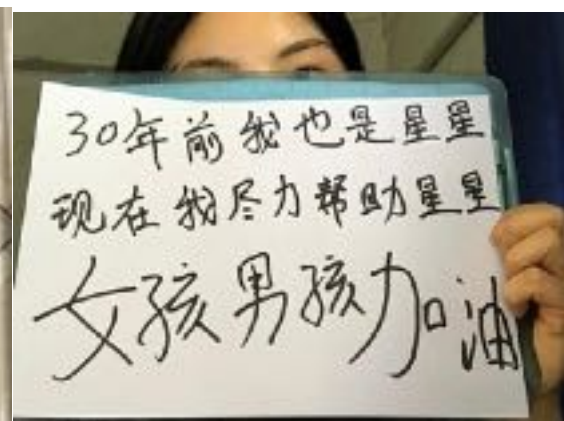 30年前我也是星星
现在我尽力帮助星星
女孩男孩加油